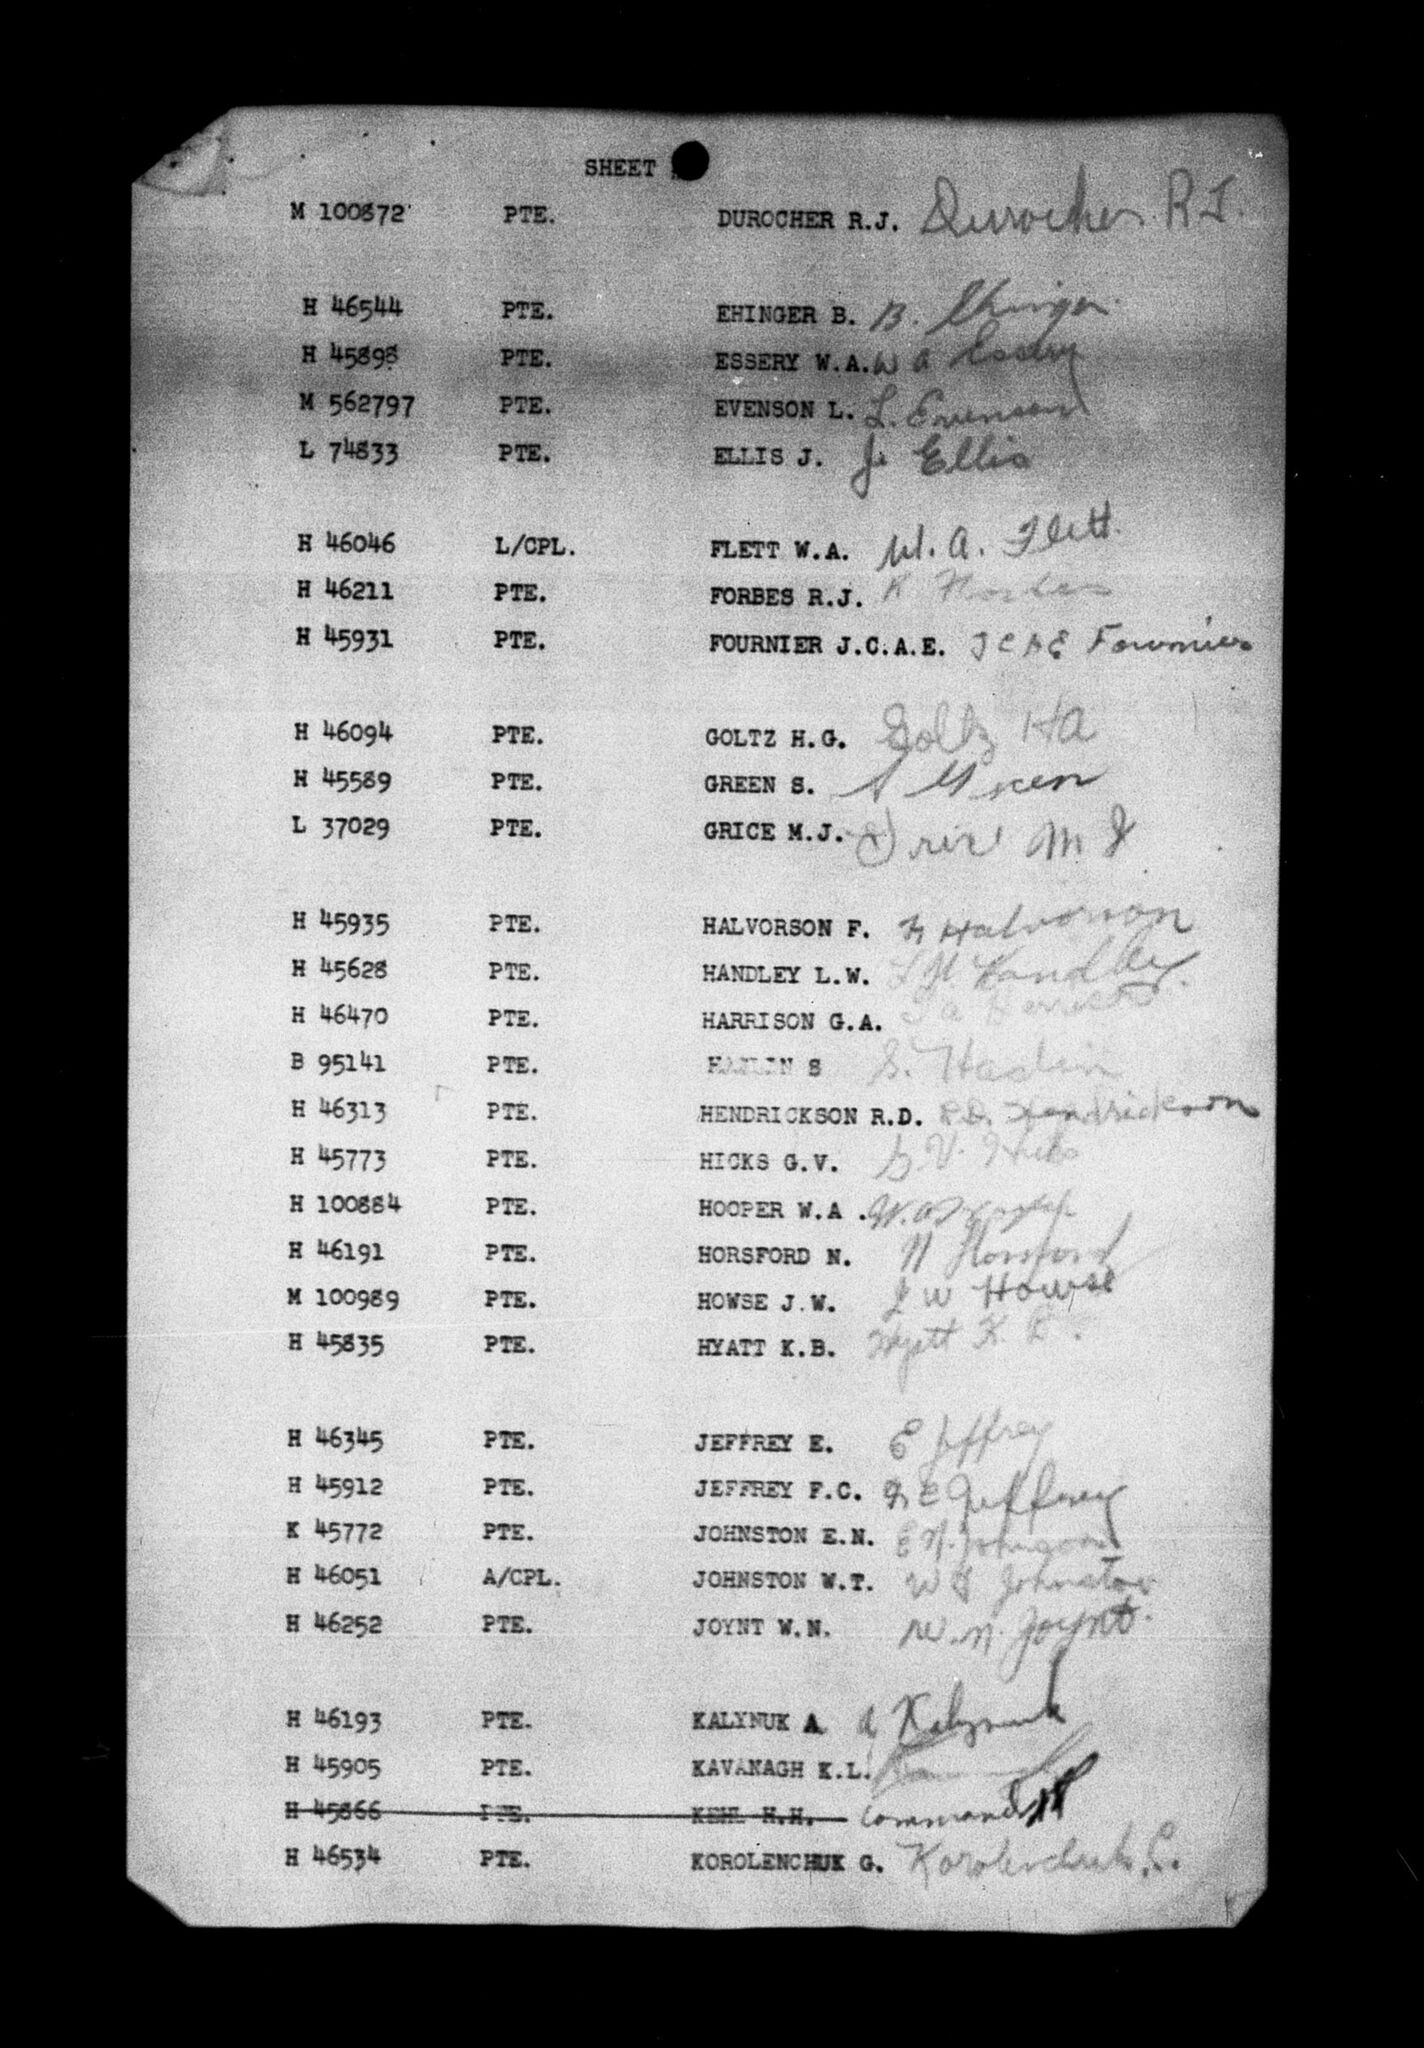 SHEET
M 100872 PTE. DUROCHER R.J. Durocher R J.
H 46544 PTE. EHINGER B. B. Ehinger
H 45898 PTE. ESSERY W.A. W A Essery
M 562797 PTE. EVENSON L. L. Evenson
L 74833 PTE. ELLIS J. J. Ellis
H 46046 L/CPL. FLETT W.A. W. A. Flett.
H 46211 PTE. FORBES R.J. R Forbes
H 45931 PTE. FOURNIER J.C.A.E. J C A E Fournier
H 46094 PTE. GOLTZ H.G. Goltz HG
H 45589 PTE. GREEN S. S Green
L 37029 PTE. GRICE M.J. Grice M J
H 45935 PTE. HALVORSON F. F Halvorson
H 45628 PTE. HANDLEY L.W. L W. Handley.
H 46470 PTE. HARRISON G.A. G A Harrison
B 95141 PTE. S S.
H 46313 PTE. HENDRICKSON R.D. R.D. Hendrickson
H 45773 PTE. HICKS G.V. G V. Hicks
H 100884 PTE. HOOPER W.A . W. A Hooper
H 46191 PTE. HORSFORD N. N Horsford
M 100989 PTE. HOWSE J.W. J W Howse
H 45835 PTE. HYATT K.B. Hyatt K. B.
H 46345 PTE. JEFFREY E. E Jeffrey
H 45912 PTE. JEFFREY F.C. F C Jeffrey
K 45772 PTE. JOHNSTON E.N. E N. Johnston
H 46051 A/CPL. JOHNSTON W.T. W T Johnston
H 46252 PTE. JOYNT W.N. W. N. Joynt.
H 46193 PTE. KALYNUK A A Kalynuk
H 45905 PTE. KAVANAGH K.L.
H 45866 PTE. KEHL H.H.
H 46534 PTE. KOROLENCHUK G. Korolenchuk. G.